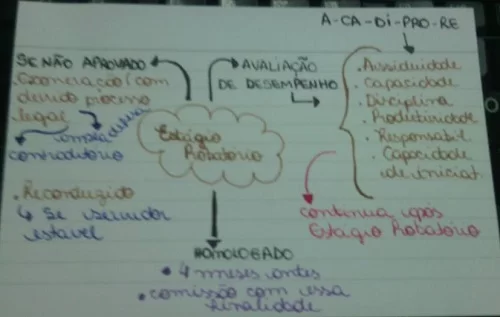 A-CA-Di-PRO-RE
SE NÃO APROVADO
. Exoneração (com
devido processo
legal
ampla defesa
contraditório
. Reconduzido
↳ se servidor
estável
AVALIAÇÃO
DE DESEMPENHO
Estágio
Probatório
. Assiduidade
. Capacidade
. Disciplina
. Produtividade
. Responsabil
. Capacidade
de iniciat.
continua após
Estágio Probatório
HOMOLOGADO
• 4 meses antes
• comissão com essa
finalidade